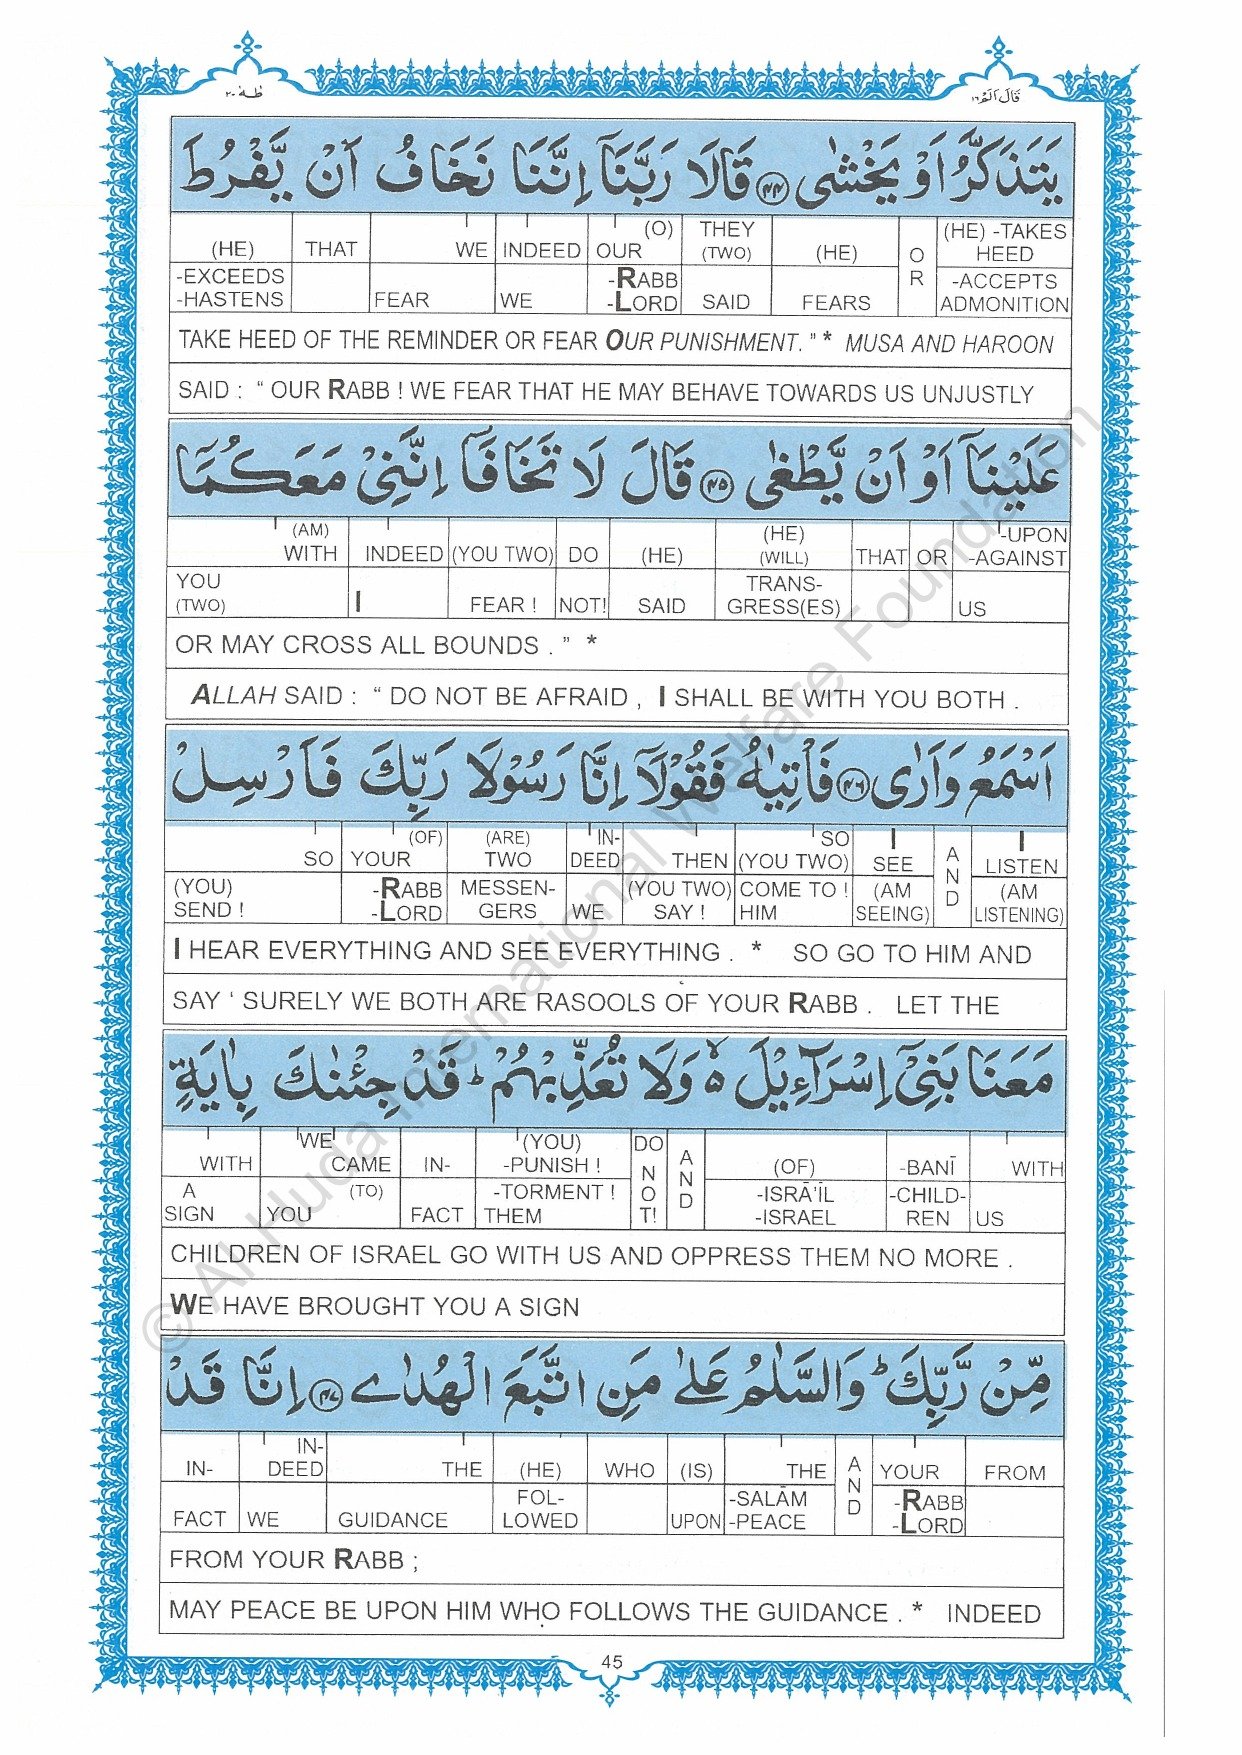 طٰهٰ ٢٠
قَالَ اَلَمْ ١٦
يَتَذَكَّرُ اَوْ يَخْشٰى ﴿٤٤﴾ قَالَا رَبَّنَآ اِنَّنَا نَخَافُ اَنْ يَّفْرُطَ
(HE) THAT WE INDEED (O) OUR THEY (TWO) (HE) OR (HE) -TAKES HEED
-EXCEEDS -HASTENS FEAR WE -RABB -LORD SAID FEARS -ACCEPTS ADMONITION
TAKE HEED OF THE REMINDER OR FEAR OUR PUNISHMENT. " * MUSA AND HAROON
SAID : " OUR RABB ! WE FEAR THAT HE MAY BEHAVE TOWARDS US UNJUSTLY
عَلَيْنَآ اَوْ اَنْ يَّطْغٰى ﴿٤٥﴾ قَالَ لَا تَخَافَآ اِنَّنِيْ مَعَكُمَآ
(AM) WITH INDEED (YOU TWO) DO (HE) (HE) (WILL) THAT OR -UPON -AGAINST
YOU (TWO) I FEAR ! NOT! SAID TRANS- GRESS(ES) US
OR MAY CROSS ALL BOUNDS . " *
ALLAH SAID : " DO NOT BE AFRAID , I SHALL BE WITH YOU BOTH .
اَسْمَعُ وَاَرٰى ﴿٤٦﴾ فَاْتِيٰهُ فَقُوْلَآ اِنَّا رَسُوْلَا رَبِّكَ فَاَرْسِلْ
SO (OF) YOUR (ARE) TWO IN- DEED THEN SO (YOU TWO) I SEE AND I LISTEN
(YOU) SEND ! -RABB -LORD MESSEN- GERS WE (YOU TWO) SAY ! COME TO ! HIM (AM SEEING) (AM LISTENING)
I HEAR EVERYTHING AND SEE EVERYTHING . * SO GO TO HIM AND
SAY ' SURELY WE BOTH ARE RASOOLS OF YOUR RABB . LET THE
مَعَنَا بَنِيْٓ اِسْرَآءِيْلَ ۙ وَلَا تُعَذِّبْهُمْ ؕ قَدْ جِئْنٰكَ بِاٰيَةٍ
WITH WE CAME IN- (YOU) -PUNISH ! DO NOT! AND (OF) -BANĪ WITH
A SIGN (TO) YOU FACT -TORMENT ! THEM -ISRĀ'ĪL -ISRAEL -CHILD- REN US
CHILDREN OF ISRAEL GO WITH US AND OPPRESS THEM NO MORE .
WE HAVE BROUGHT YOU A SIGN
مِّنْ رَّبِّكَ ؕ وَالسَّلٰمُ عَلٰى مَنِ اتَّبَعَ الْهُدٰى ﴿٤٧﴾ اِنَّا قَدْ
IN- IN- DEED THE (HE) WHO (IS) THE AND YOUR FROM
FACT WE GUIDANCE FOL- LOWED UPON -SALĀM -PEACE -RABB -LORD
FROM YOUR RABB ;
MAY PEACE BE UPON HIM WHO FOLLOWS THE GUIDANCE . * INDEED
45
© Al Huda International Welfare Foundation